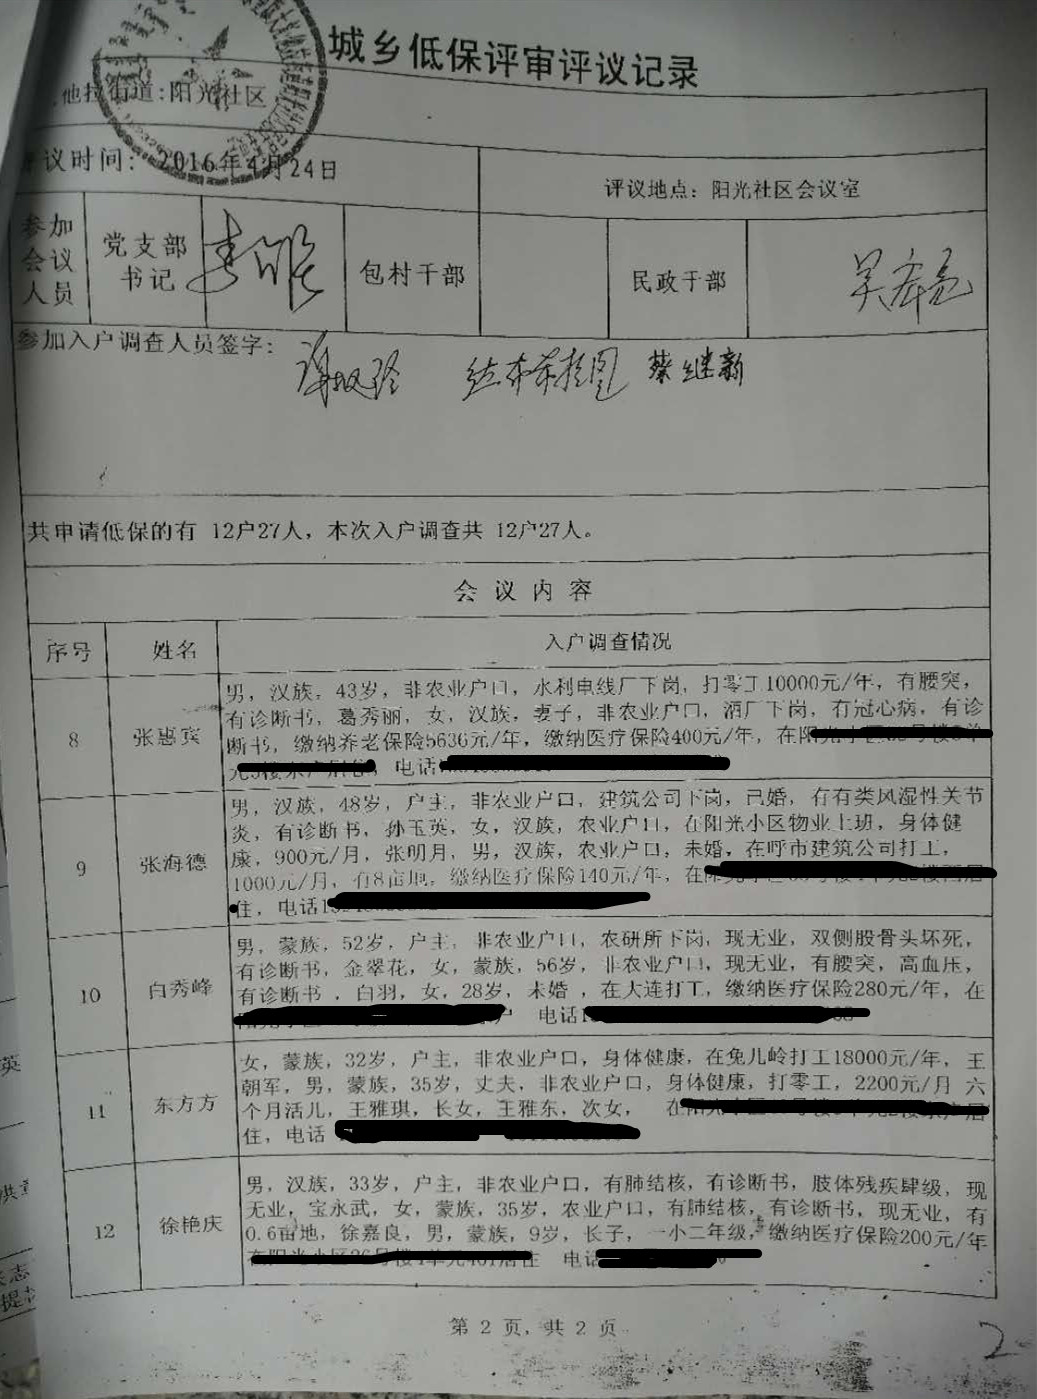 城乡低保评审评议记录
他拉街道:阳光社区
议时间: 2016年4月24日
评议地点: 阳光社区会议室
参加会议人员
党支部书记
包村干部
民政干部
参加入户调查人员签字:
蔡继新
共申请低保的有 12户27人，本次入户调查共 12户27人。
会 议 内 容
序号 姓名 入户调查情况
8 张惠宾
男，汉族，43岁，非农业户口，水利电线厂下岗，打零工10000元/年，有腰突，
有诊断书，葛秀丽，女，汉族，妻子，非农业户口，酒厂下岗，有冠心病，有诊
断书，缴纳养老保险5636元/年，缴纳医疗保险400元/年，在
电话
9 张海德
男，汉族，48岁，户主，非农业户口，建筑公司下岗，已婚，有有类风湿性关节
炎，有诊断书，孙玉英，女，汉族，农业户口，在阳光小区物业上班，身体健
康，900元/月，张明月，男，汉族，农业户口，未婚，在呼市建筑公司打工，
1000元/月，有8亩地，缴纳医疗保险140元/年，在
住，电话
10 白秀峰
男，蒙族，52岁，户主，非农业户口，农研所下岗，现无业，双侧股骨头坏死，
有诊断书，金翠花，女，蒙族，56岁，非农业户口，现无业，有腰突，高血压，
有诊断书，白羽，女，28岁，未婚，在大连打工，缴纳医疗保险280元/年，在
户 电话
11 东方方
女，蒙族，32岁，户主，非农业户口，身体健康，在兔儿岭打工18000元/年，王
朝军，男，蒙族，35岁，丈夫，非农业户口，身体健康，打零工，2200元/月 六
个月活儿，王雅琪，长女，王雅东，次女， 在
住，电话
12 徐艳庆
男，汉族，33岁，户主，非农业户口，有肺结核，有诊断书，肢体残疾肆级，现
无业，宝永武，女，蒙族，35岁，农业户口，有肺结核，有诊断书，现无业，有
0.6亩地，徐嘉良，男，蒙族，9岁，长子，一小二年级，缴纳医疗保险200元/年
居住 电话
第 2 页，共 2 页
2